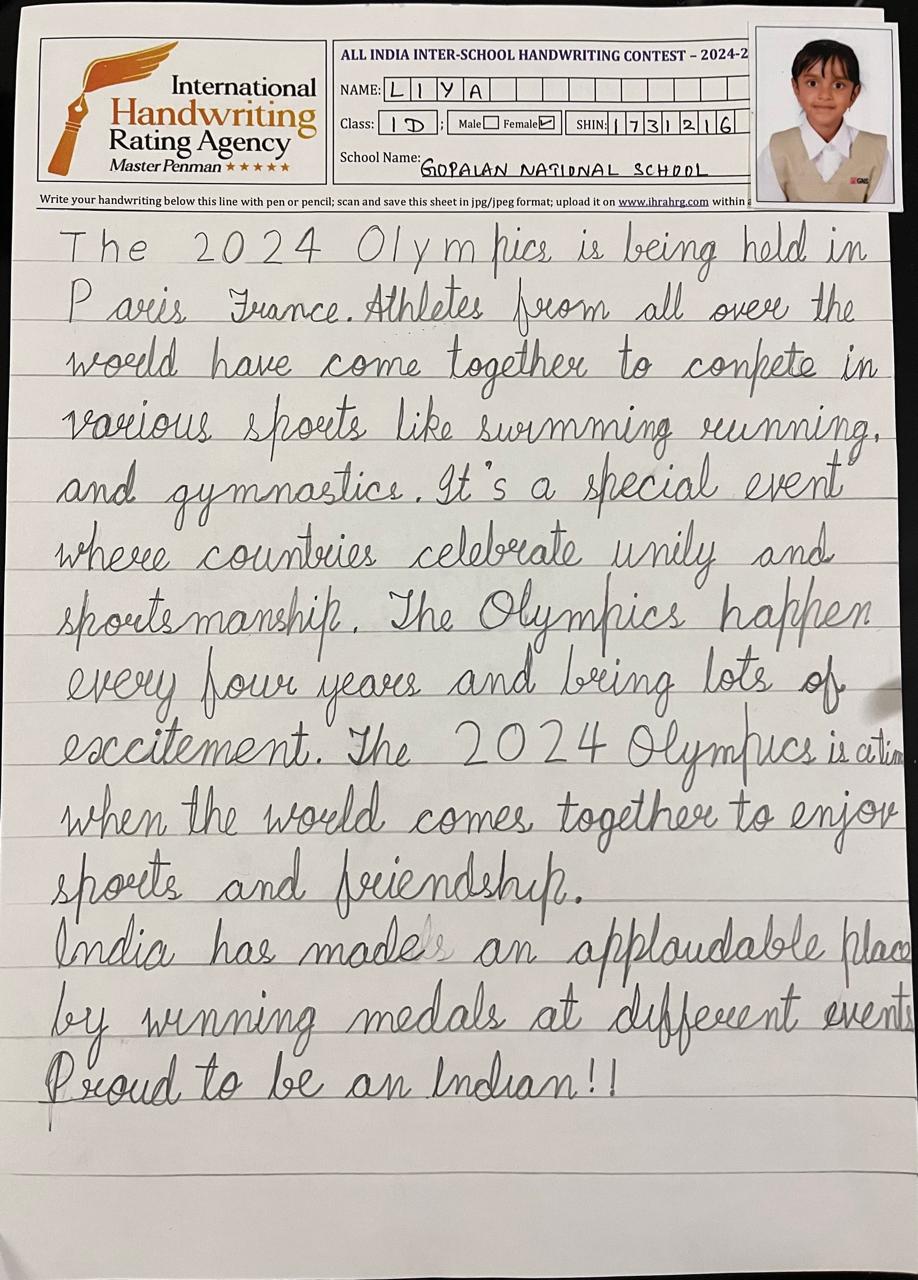 International
Handwriting
Rating Agency
Master Penman
ALL INDIA INTER-SCHOOL HANDWRITING CONTEST – 2024-2
NAME: L I Y A
Class: I D ; Male Female SHIN: 1 7 3 1 2 1 6
School Name: GOPALAN NATIONAL SCHOOL
GNS
Write your handwriting below this line with pen or pencil; scan and save this sheet in jpg/jpeg format; upload it on www.ihrahrg.com within
The 2024 Olympics is being held in
Paris France. Athletes from all over the
world have come together to conpete in
various sports like swimming running,
and gymnastics. It's a special event
where countries celebrate unily and
sportsmanship. The Olympics happen
every four years and being lots of
excitement. The 2024 Olympics is a tim
when the world comes together to enjoy
sports and friendship.
India has made an applaudable place
by winning medals at different events
Proud to be an Indian!!